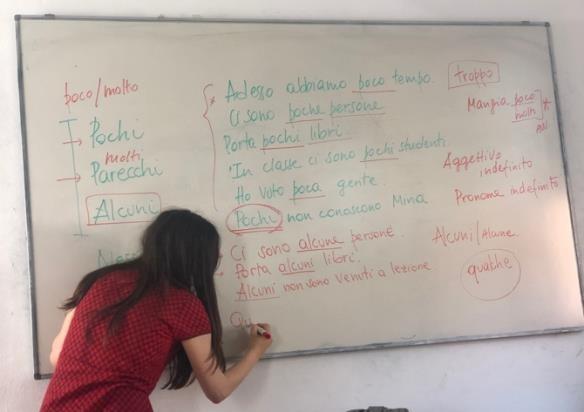 poco/molto
Pochi
molti
Parecchi
Alcuni
Adesso abbiamo poco tempo.
Ci sono poche persone
Porta pochi libri.
In classe ci sono pochi studenti.
Ho visto poca gente.
Pochi non conoscono Mina.
Ci sono alcune persone.
Porta alcuni libri.
Alcuni non sono venuti a lezione
Qu
troppo
Mangia poco
molti
Aggettivo
indefinito
Pronome indefinito
Alcuni/Alcune
qualche